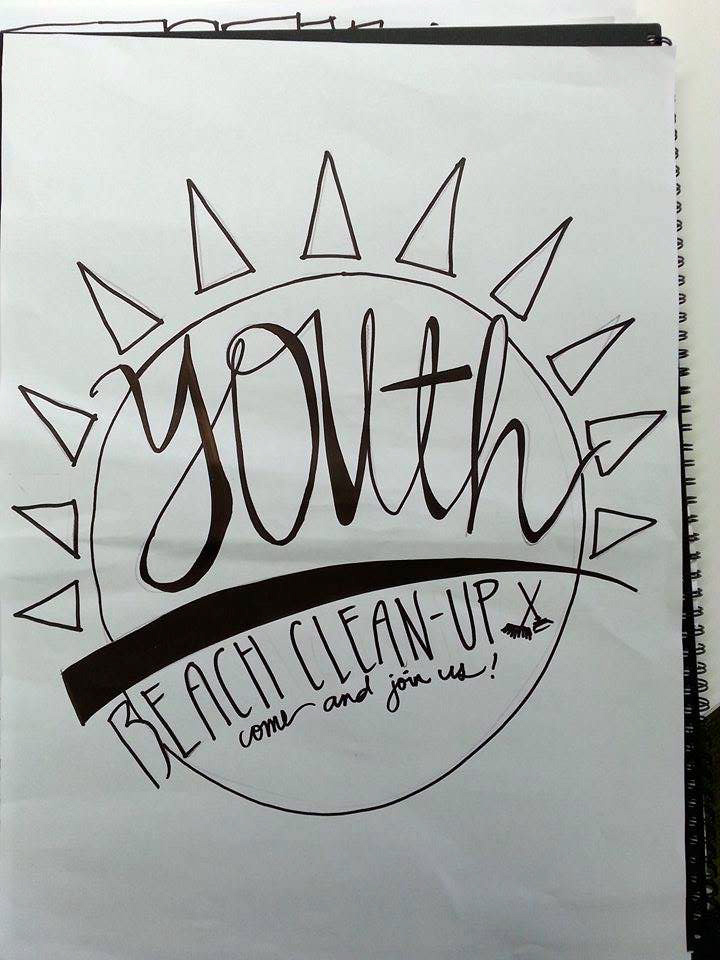 youth
BEACH CLEAN-UP
come and join us!